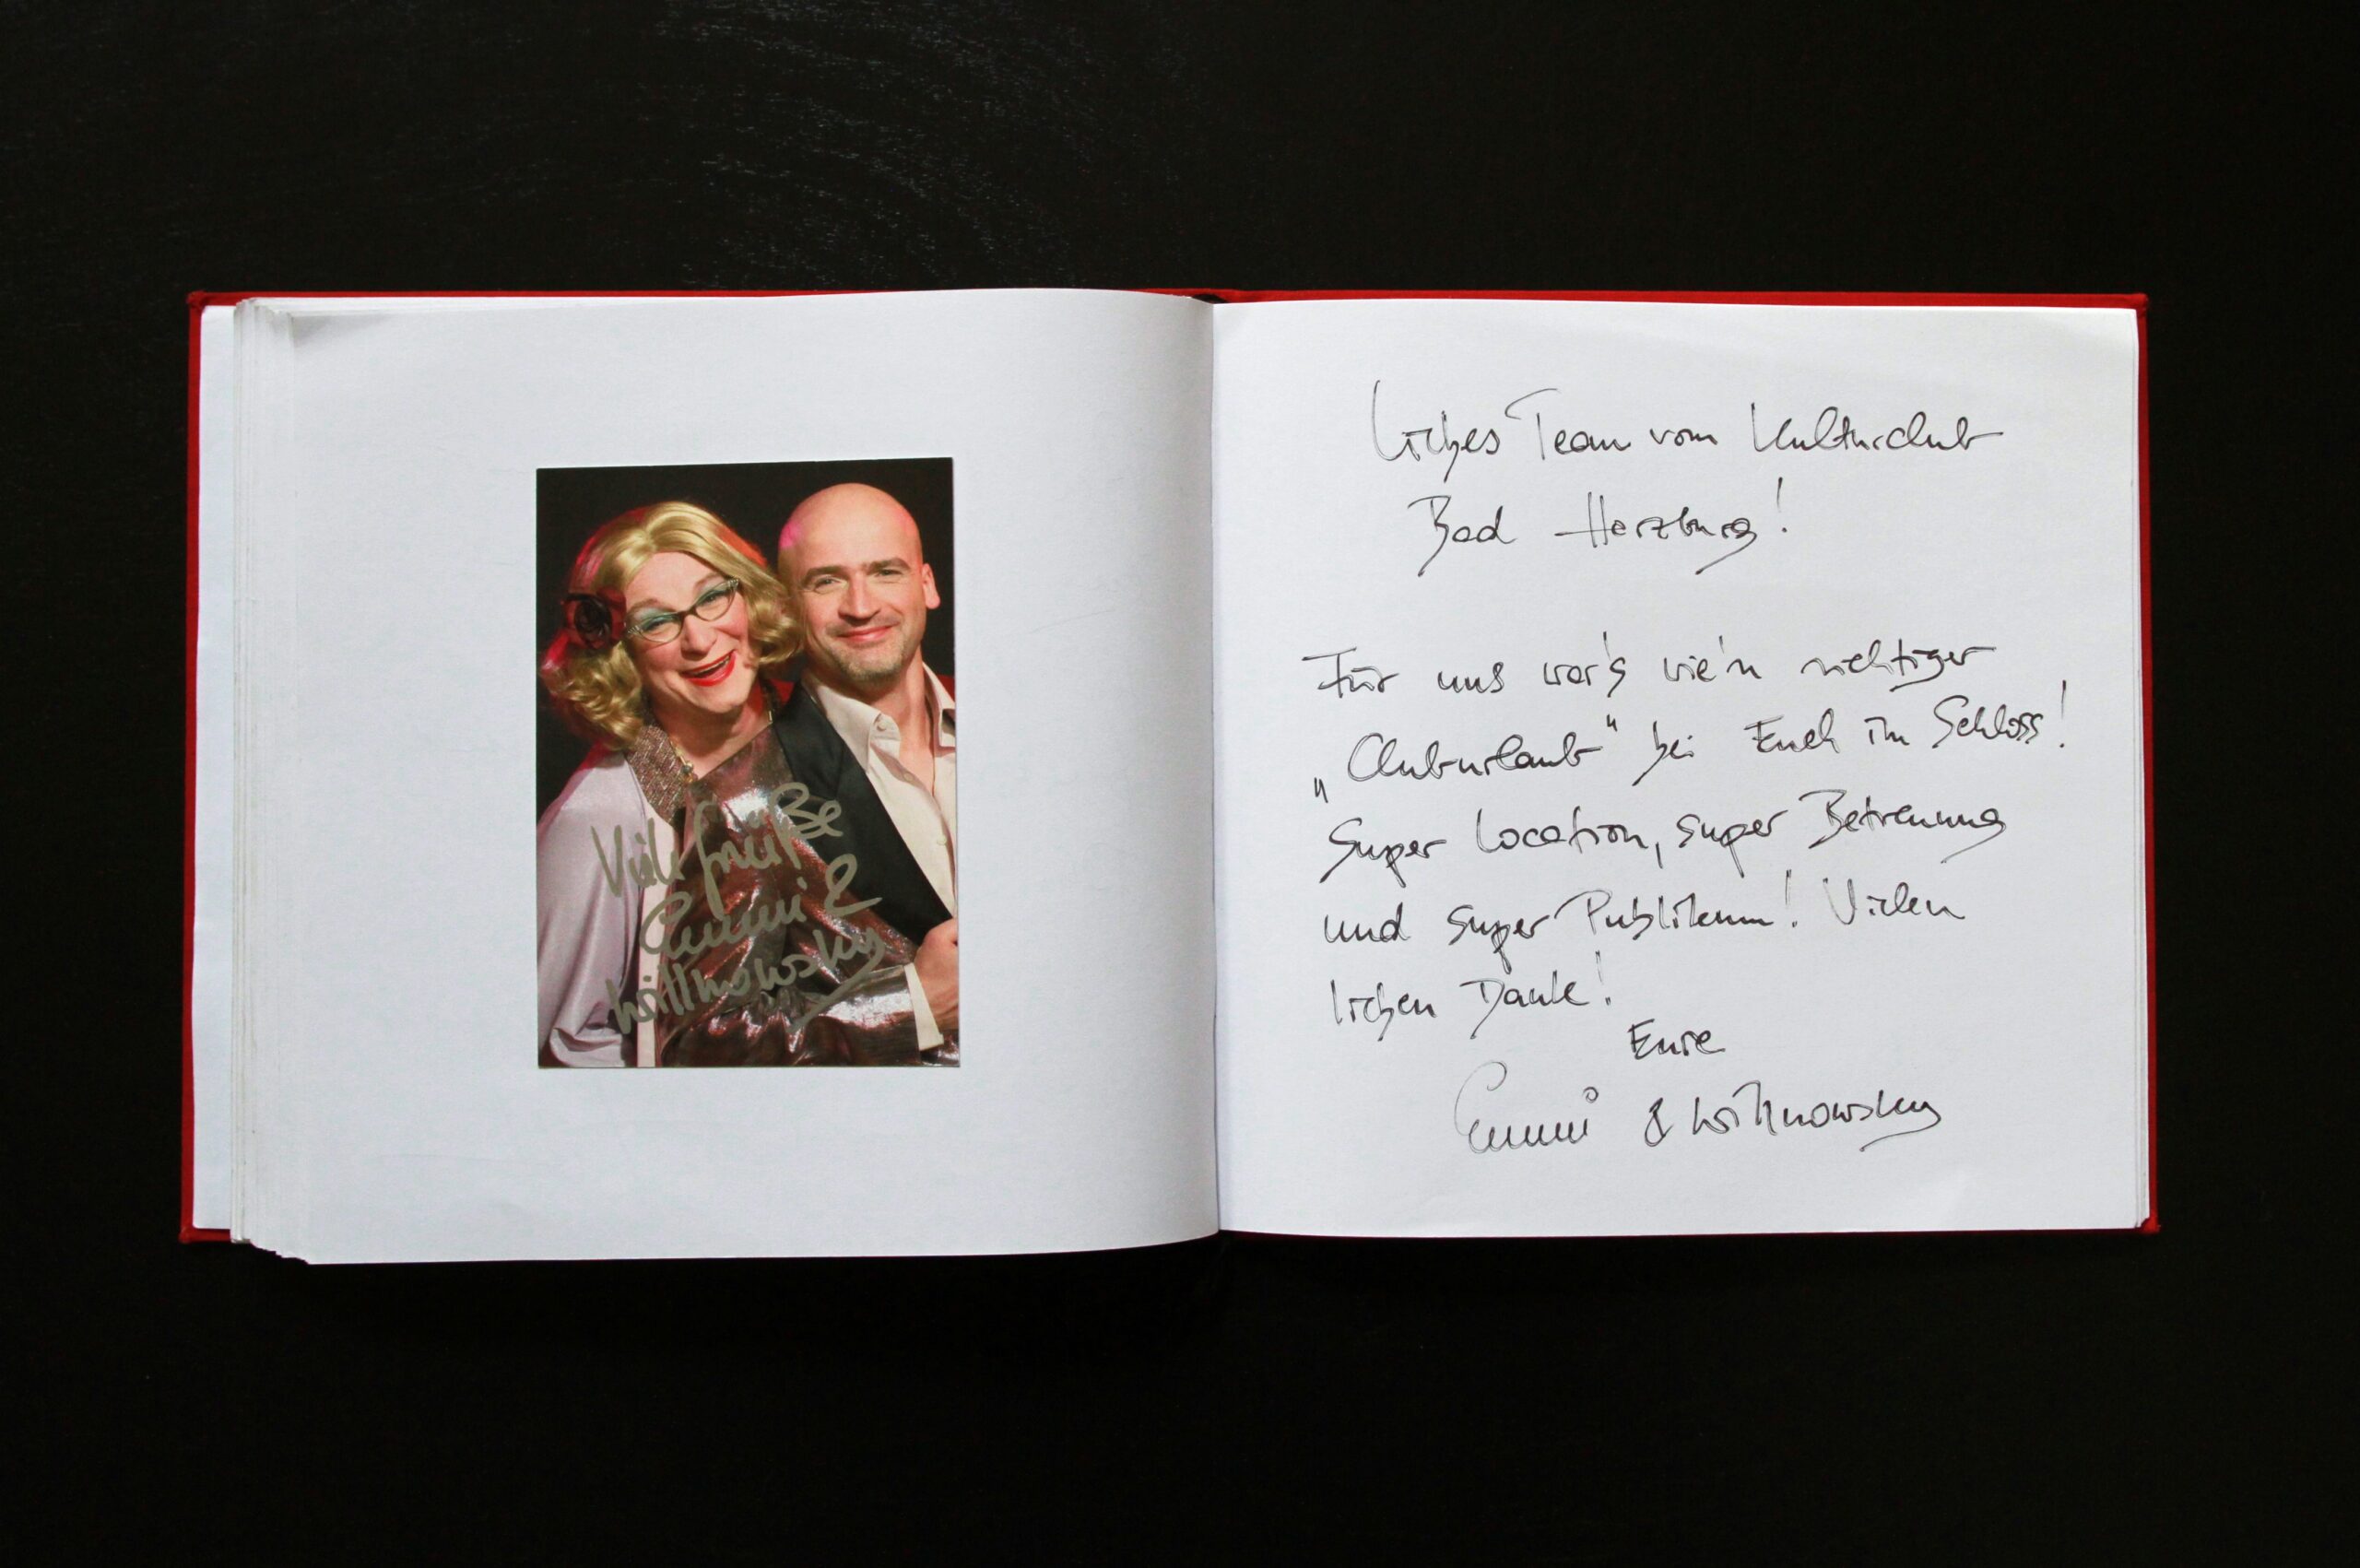 Viele Grüße
Emmi &
Willnowsky
Liebes Team vom Kulturclub
Bad Harzburg!
Für uns war's wie'n richtiger
„Cluburlaub“ bei Euch im Schloss!
Super Location, super Betreuung
und super Publikum! Vielen
lieben Dank!
Eure
Emmi & Willnowsky